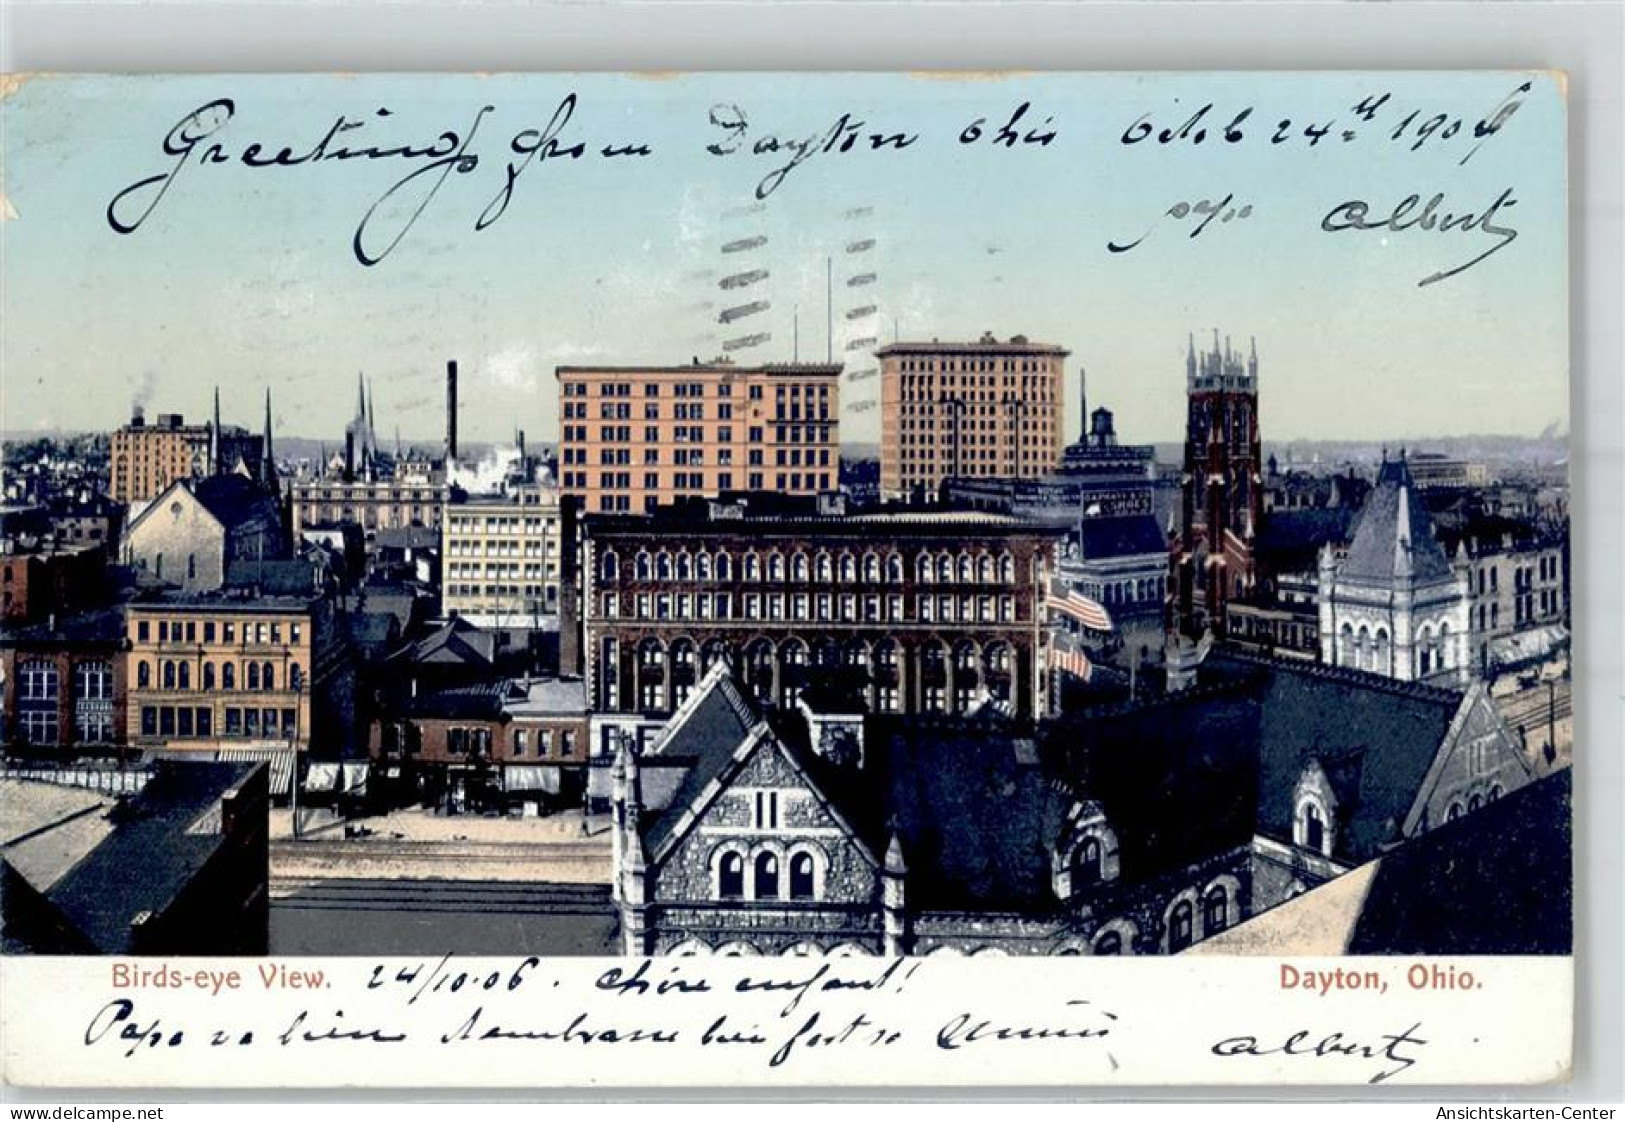 Greetings from Dayton Ohio Octob 24th 190
papa Albert
SHOES
Birds-eye View. 24/10.06. chère enfant! Dayton, Ohio.
Papa va bien t'embrasse bien fort
Albert
www.delcampe.net/collections/CARTE-POSTALE Ansichtskarten-Center